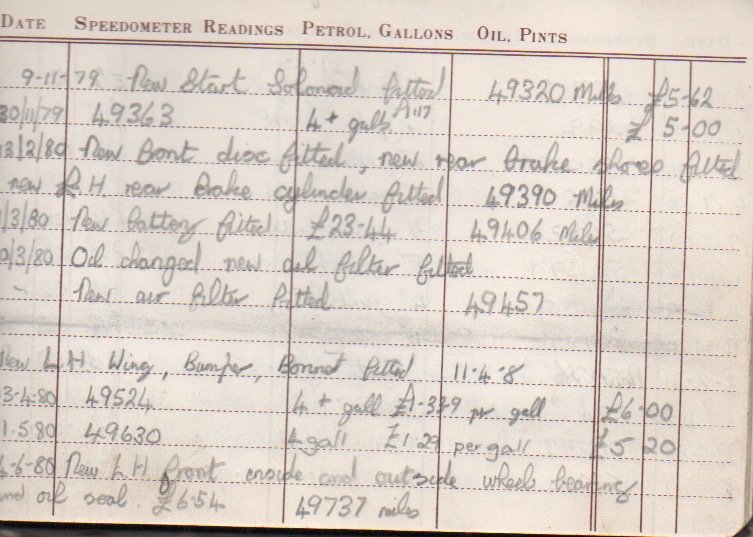 DATE SPEEDOMETER READINGS PETROL, GALLONS OIL, PINTS
9-11-79 New Start Solonoid fitted 49320 Miles £5-62
30/11/79 49363 4+ galls £ 5-00
13/2/80 New front disc fitted, new rear brake shoes fitted
new R H rear brake cylinder fitted 49390 Miles
/3/80 New battery fitted £23-44 49406 Miles
0/3/80 Oil changed new oil filter fitted
- New air filter fitted 49457
New L H Wing, Bumper, Bonnet fitted 11-4-8
3-4-80 49524 4 + gall £1-339 per gall £6-00
1.5.80 49630 4 gall £1.29 per gall £5 20
4-6-80 New L H front inside and outside wheel bearing
and oil seal. £6.54 49737 miles